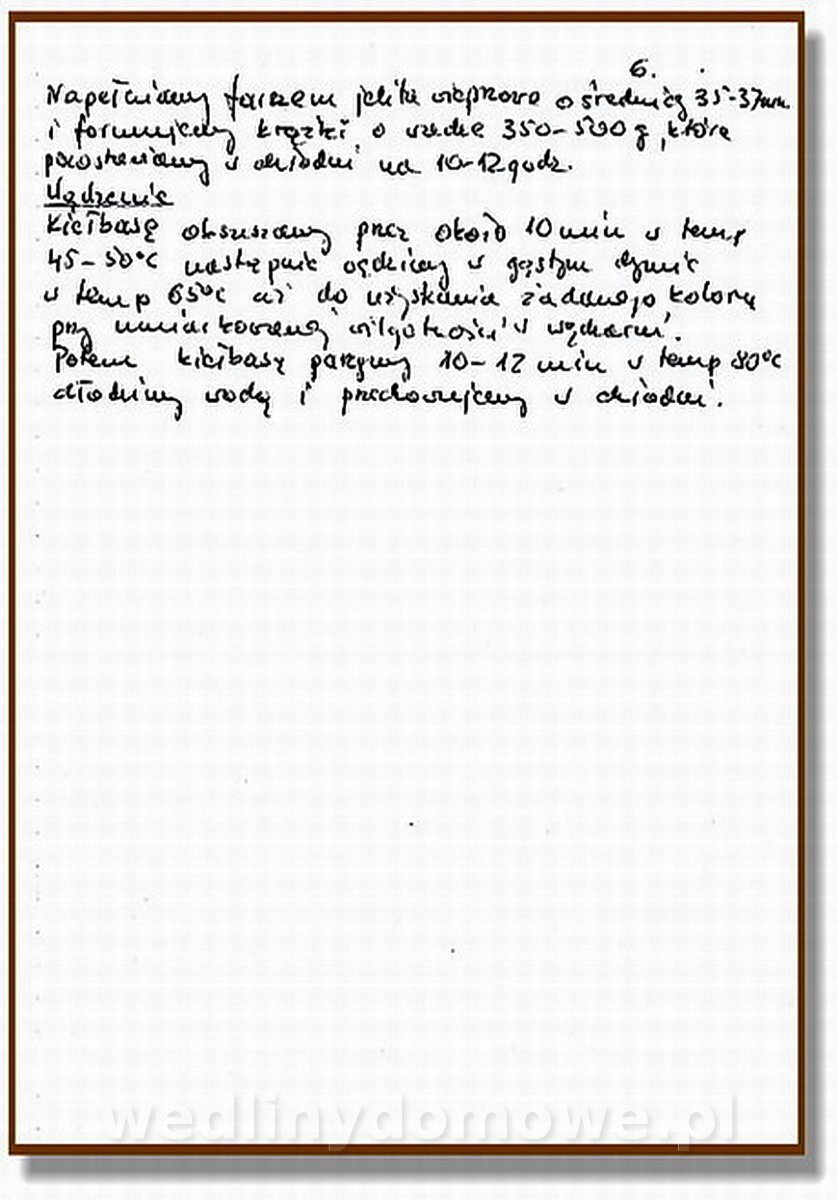 6.
Napełniamy farszem jelita wieprzowe o średnicy 35-37mm
i formujemy krążki o wadze 350-500 g, które
pozostawiamy w chłodni na 10-12 godz.
Wędzenie
Kiełbasę obsuszamy przez około 10 min w temp
45-50°C następnie wędzimy w gęstym dymie
w temp 65°C aż do uzyskania żądanego koloru
przy umiarkowanej wilgotności w wędzarni.
Potem kiełbasę parzymy 10-12 min w temp 80°C
chłodzimy wodą i przechowujemy w chłodni.
wedlinydomowe.pl